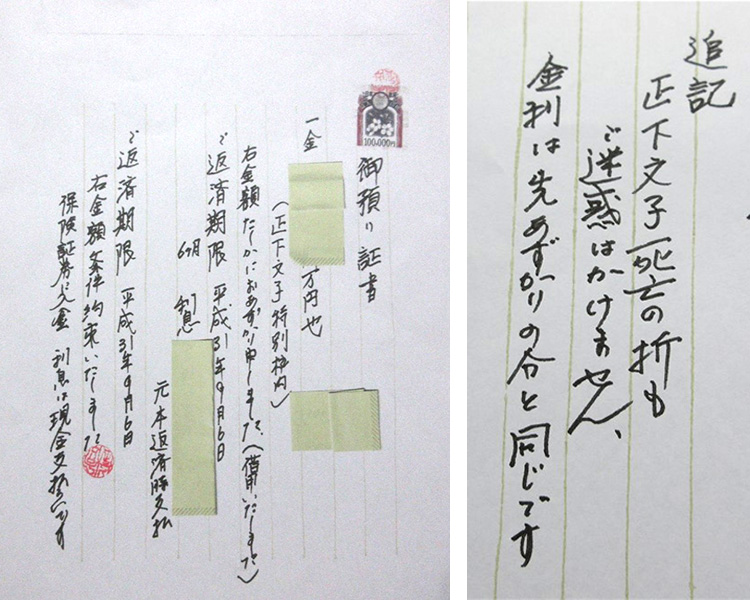 100,000円
御預り証書
一金
万円也
(正下文子特別枠内)
右金額たしかにおあずかり申しました、(借用いたします)
ご返済期限 平成31年9月6日
6ヶ月 利息
元本返済時支払
ご返済期限 平成31年9月6日
右金額条件約束いたしました
保険証券に入金 利息は現金支払いです
追記
正下文子死亡の折も
ご迷惑はかけません、
金利は先あずかりの分と同じです